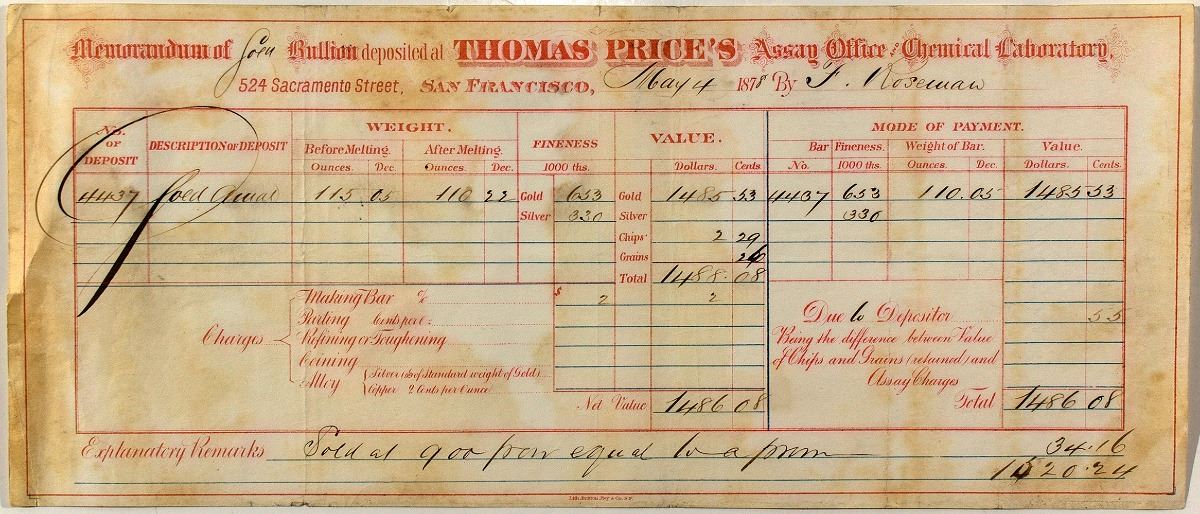 Memorandum of Gold Bullion deposited at THOMAS PRICE'S Assay Office and Chemical Laboratory,
524 Sacramento Street, SAN FRANCISCO, May 4 1878 By F. Roseman
No. OF DEPOSIT DESCRIPTION OF DEPOSIT WEIGHT. FINENESS VALUE. MODE OF PAYMENT.
Before Melting. After Melting. 1000 ths. Bar Fineness. Weight of Bar. Value.
Ounces. Dec. Ounces. Dec. Dollars. Cents. No. 1000 ths. Ounces. Dec. Dollars. Cents.
4437 Gold 115 05 110 22 Gold 653 Gold 1485 53 4437 653 110.05 1485 53
Silver 330 Silver 330
Chips 2 29
Grains 26
Total 1488.08
Charges
Making Bar % $ 2 2
Parting Cents per oz.
Refining or Toughening
Coining
Alloy Silver of Standard weight of Gold)
Copper 2 Cents per Ounce
Net Value 1486 08
Due to Depositor 55
Being the difference between Value
of Chips and Grains (retained) and
Assay Charges
Total 1486 08
Explanatory Remarks Sold at 900 equal to a prem 34.16
1520.24
Lith. Britton, Rey & Co. S.F.